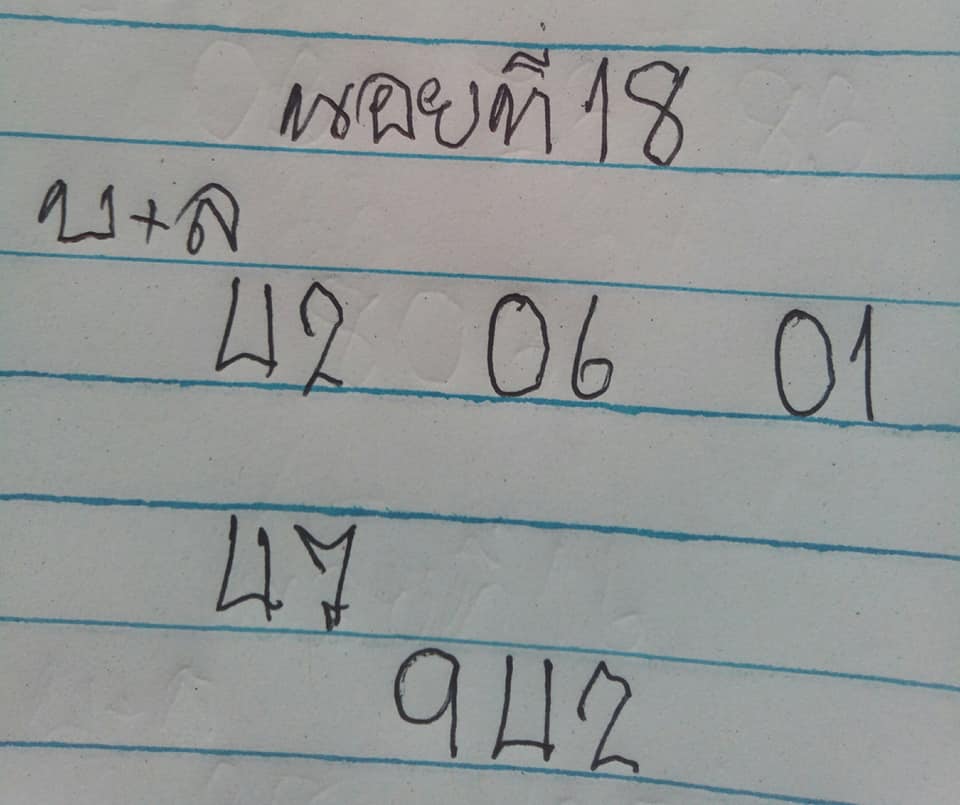 หอยที่ 18
บ+ล
42 06 01
47
942